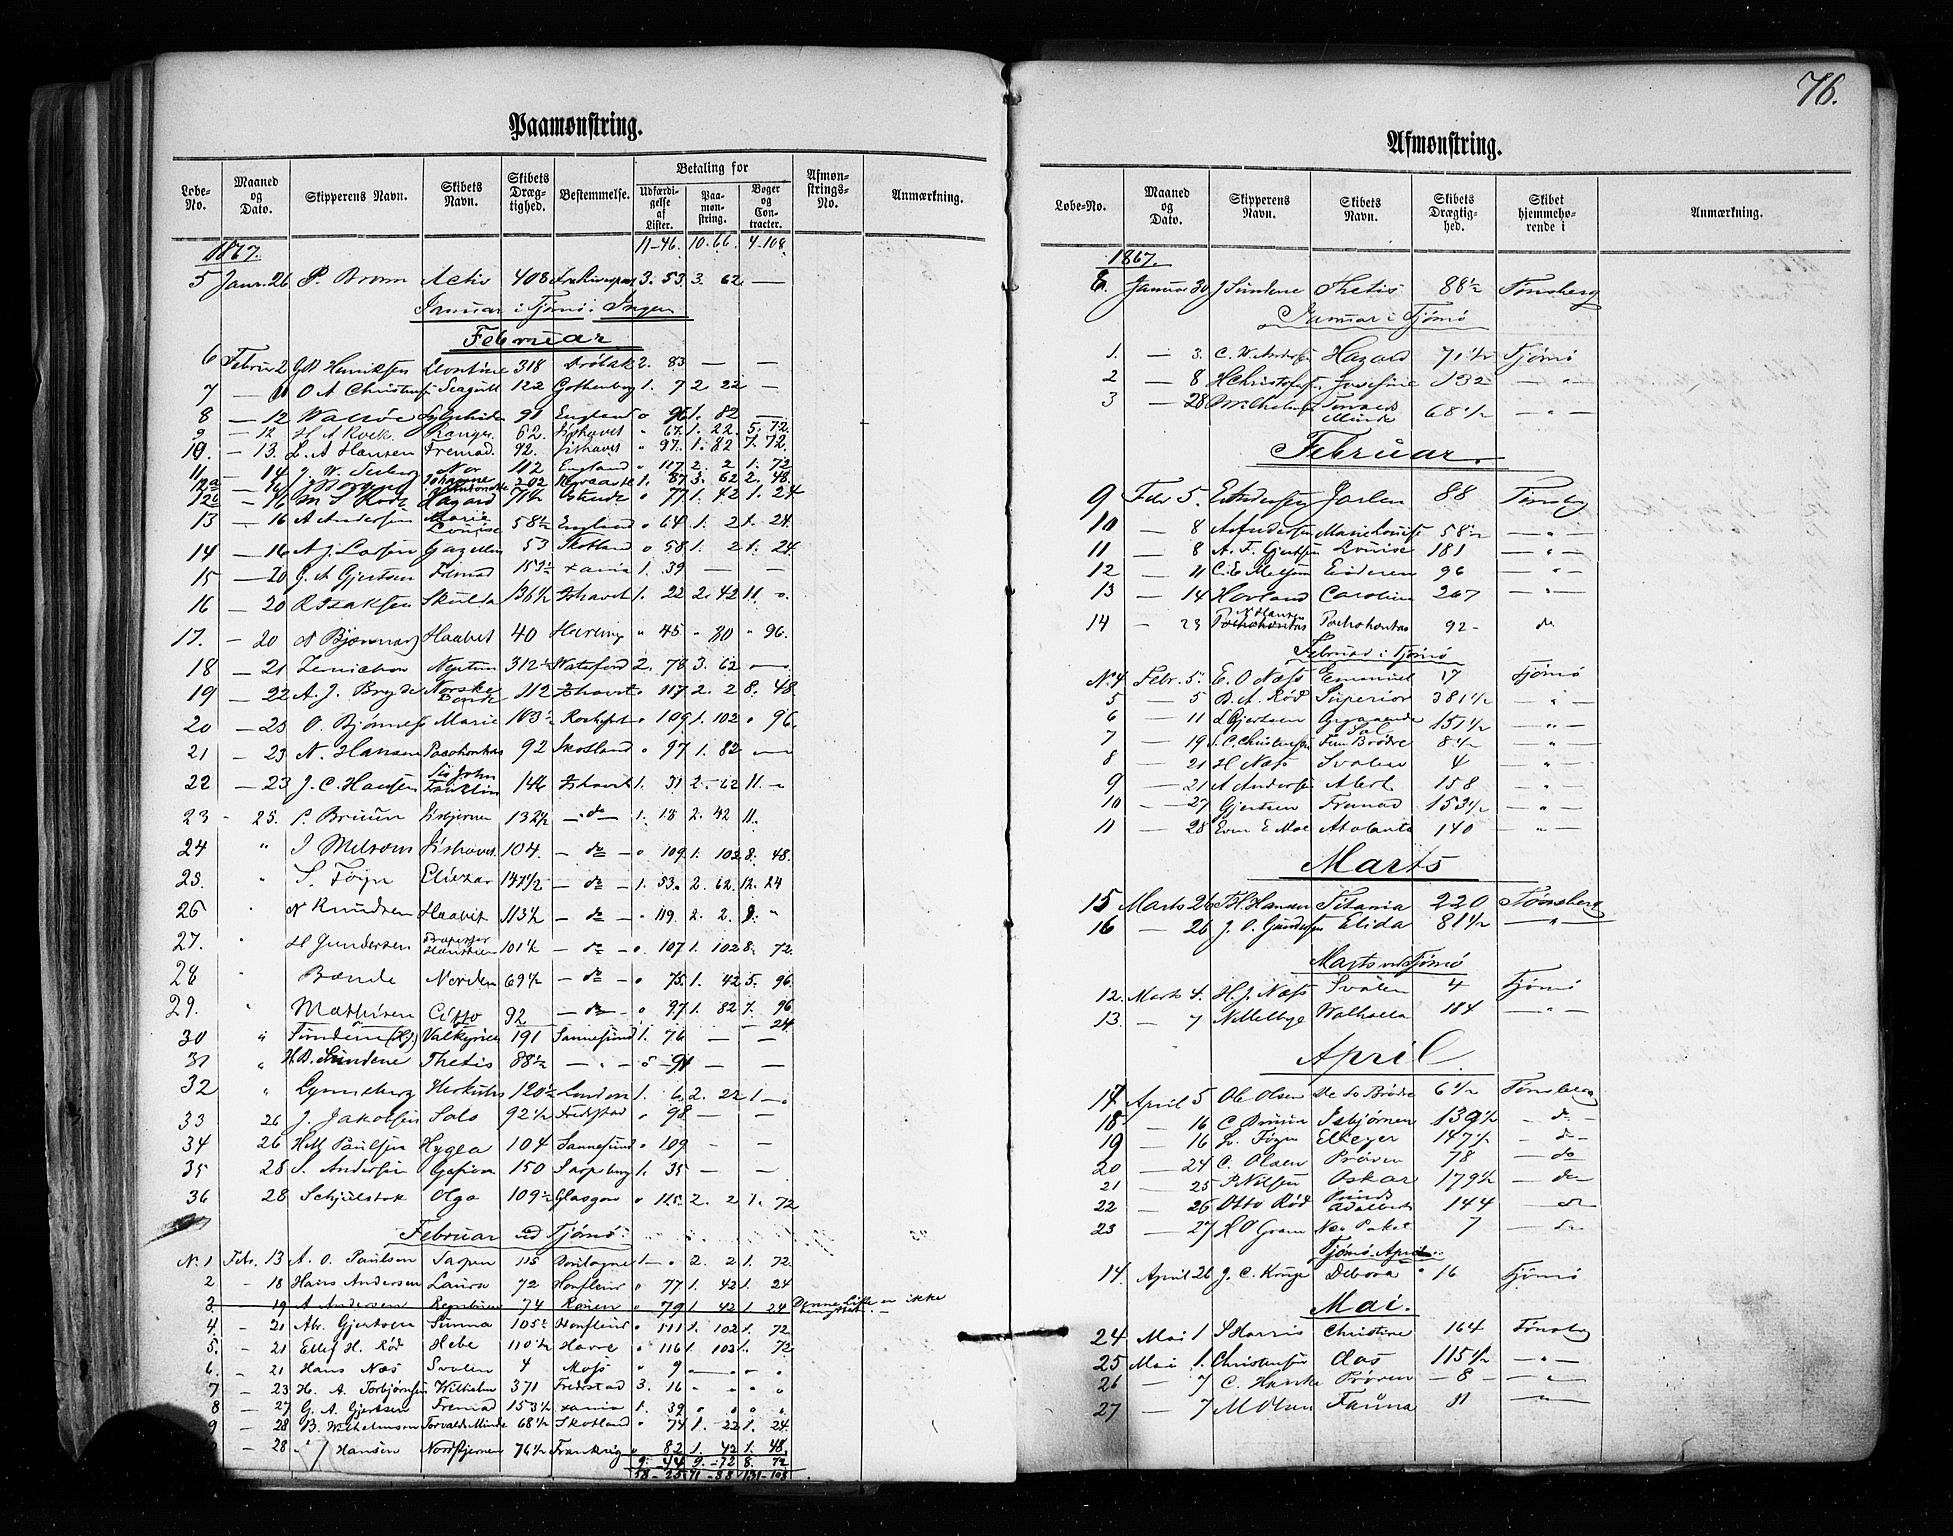 Paamønstring.
Løbe-No. Maaned og Dato. Skipperens Navn. Skibets Navn. Skibets Dræg-tighed. Bestemmelse. Betaling for Udfærdi-gelse af Lister. Paa-møn-string. Bøger og Con-tracter. Afmøn-strings-No. Anmærkning.
1867. 11-46. 10.66. 4-108
5 Janr. 26 P. Brown Activ 408 3. 53. 3 62 —
Januar i Tjømø: Ingen
Februar
6 Februar 2 Henriksen Leontine 318 Drøbak 2. 83 — —
7 — O A Christensen Seagull 122 Gothenborg 1. 7 2 22 —
8 — 12 91 England " 96 1. 82 —
9 — 12 H A Rock Ranger 62. Ishavet " 67. 1. 22. 5. 72.
10. — 13. L. A Hansen Fremad 92. Ishavet " 97. 1. 82 7. 72.
11 — 14 J. W. Seeberg Nor 112 England " 117 2. 2 1. 72
12a — 16 Johanne Antonette 202 1. 87 3. 62 2. 48.
12b — 16 M S Rod Hazard 71½ Ostende " 77 1. 42 1. 24
13 — 16 A Andersen Marie Louise 58½ England " 64 1. 2 1. 24.
14 — 16 A J. Larsen Gazellen 53 Skotland " 58 1. 2 1. 24.
15 — 20 G. A Gjertsen Fremad 153½ Xania 1. 39 — —
16 — 20 R Isaksen Skulda 136½ Ishavet 1. 22 2. 42 11. "
17. — 20 N Bjønnes Haabet 40 " 45 " 80 " 96.
18 — 21 Neptun 312½ Waterford 2. 78 3. 62 —
19 — 22 A. J. Bryde Norske Bonde 112 Ishavet " 117 2. 2 8. 48
20 — 23 O. Bjønnes Marie 103½ " 109 1. 102 " 96.
21 — 23 N. Hansen Pocohontas 92 Skotland " 97 1. 82 —
22 — 23 J. C. Hansen Sir John Franklin 146 Ishavet 1. 31 2. 62 11. "
23 — 25. P. Bruun Isbjørnen 132½ — do — 1. 18 2. 42 11.
24 " J Melsom Ishavet 104. — do — " 109 1. 102 8. 48.
25. " S. Føyn Eliezer 147½ — do — 1. 53. 2. 62. 12. 24
26 " N Knudsen Haabet 113½ — do — " 119. 2. 2. 9. "
27. " H Gundersen Professor Hansteen 101½ — do — " 107 1. 102 8. 72.
28 " Bænde Norden 69½ — do — " 75. 1. 42 5. 96.
29. " Mathisen Citto 92 — do — " 97 1. 82 7. 96 24
30 " Sundene Valkyrien 191 Sannesund 1. 76 — —
31 " H. B. Sundene Thetis 88½ — " — " 91 — —
32 " Lynneberg Herkules 120½ London 1. 6. 2. 22 1 — .
33 26 J. Jakobsen Solo 92½ Fredstad " 98 — —
34 26 H M Paulsen Hygea 104 Sannesund " 109 — —
35 28 S. Andersen 150 Sarpsborg 1. 35 — —
36 28 Schjelstok Olga 109½ Glasgow " 115. 2. 2 1. 72
Februar ved Tjømø:
No. 1 Febr. 13 A. O. Paulsen Sarpen 115 Boulogne 1 — " 2. 2 1. 72
2 — 18 Hans Andersen Laura 72 Honfleur " 77 1. 42 1. 24
3. — 19 A Andersen 74 Rouen " 79 1. 42 1. 24 Denne Liste er ikke benyttet.
4. — 21 Abr. Gjertsen Simma 105½ Honfleur " 111 1. 102 1. 72
5. — 21 Ellef H. Rød Hebe 110½ Havre " 116 1. 102 1. 72
6. — 21 Hans Næs Svalen 4 Moss " 9 — " — " "
7 — 23 H. A. Torbjørnsen Wilhelm 371 Fredstad 3. 16 " " " "
8 — 27 G. A. Gjertsen Fremad 153½ Xania 1. 39 " " " "
9 — 28 B. Wilhelmsen Torvalds Minde 68½ Skotland " 74 1. 22 1. 24.
— 28 Hansen Nordstjernen 76½ Frankrig " 82 1. 42 1. 48.
9. 44 9. 72 8. 72
58 - 25 71 - 88 131 - 108
76.
Afmønstring.
Løbe-No. Maaned og Dato. Skipperens Navn. Skibets Navn. Skibets Drægtig-hed. Skibet hjemmehø-rende i Anmærkning.
1867.
8. Januar 30 J Sundene Thetis 88½ Tønsberg
Januar i Tjømø
1. — 3. C. W. Andersen Hazard 71½ Tjømø
2 — 8 H Christofersen Josefine 132 — " —
3 — 28 B Wilhelmsen Torvalds Minde 68½ — " —
Februar.
9 Febr 5. E Andersen Jarlen 88 Tønsberg
10 — 8 A Andersen Marie Louise 58½ — " —
11 — 8 A. F. Gjertsen Louise 181 — " —
12 — 11 C. E Melsom Eideren 96 — " —
13 — 14 Hovland Caroline 267 — " —
14 — 23 N Hansen Pochohontas 92 — do
Februar i Tjømø
No 4 Febr. 5. E. O Næss Emanuel 17 Tjømø
5 — 5 B. A. Rød Superior 381½ — " —
6 — 11 L Gjertsen Opgaaende Sol 151½ — " —
7 — 19 S. C. Christensen Fem Brødre 8½ — " —
8 — 21 H Næss Svalen 4 — " —
9 — 21 A Andersen Abert 158 — " —
10 — 27 Gjertsen Fremad 153½ — " —
11 — 28 Even E Moe Atalanta 140 — " —
Marts
15 Marts 26 Th. Hansen Titania 220 Tønsberg
16 — 26 J. O. Gundersen Elida 81½ — " —
Marts ved Tjømø
12. Marts 4. H. J. Næss Svalen 4 Tjømø
13. — 7 N Mellbye Walhalla 184 — " —
April.
17 April 5 Ole Olsen De to Brødre 6½ Tønsberg
18 — 16 C Bruun Isbjørnen 139½ — do
19 — 16 S. Føyn Eliezer 147½ — do —
20 — 24 C. Olsen Prøven 78 — do
21 — 25 P. Nilsen Oskar 179½ — do
22 — 26 Otto Rød Prinds Adalbert 144 — do
23 — 27 H O Gram Nøe Paket 7 — do
Tjømø April
14. April 26 J. C. Kruge Debora 16 Tjømø
Mai.
24 Mai 1 S Harris Christine 164 Tønsberg
25 Mai 1. Christensen Aas 115½ — " —
26 — 7 C. Hanske Prøven — 8 — — " —
27 — 7 M Olsen Fauna 11 — " —